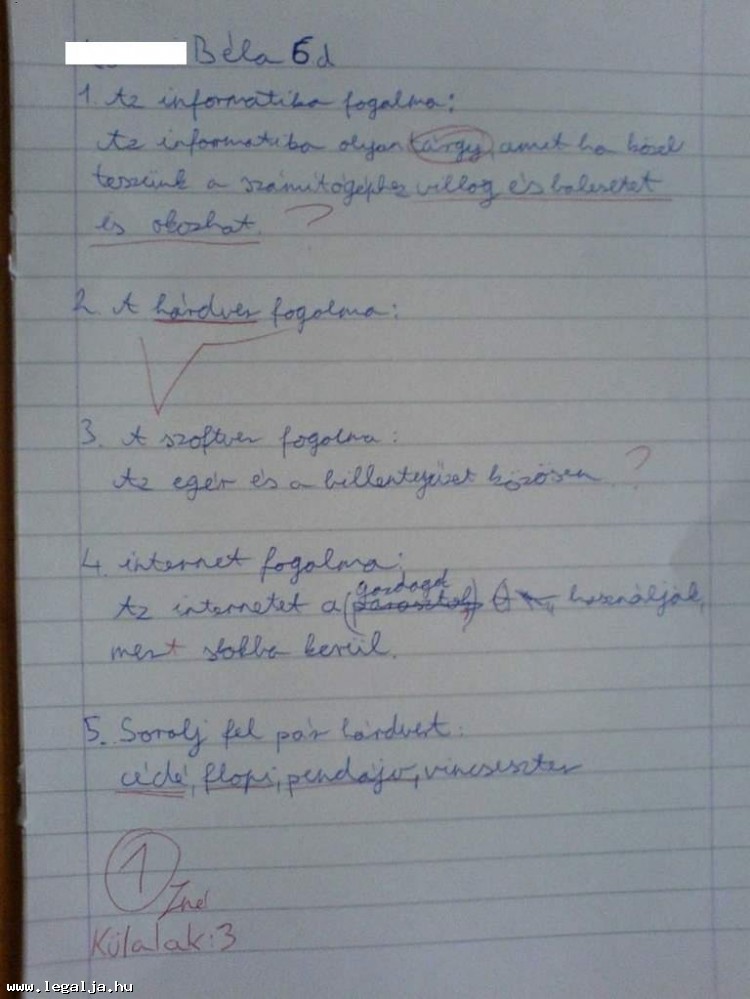 Béla 6d
1. Az informatika fogalma:
Az informatika olyan tárgy, amit ha közel
teszünk a számítógéphez villog és balesetet
és okozhat. ?
2. A hárdver fogalma:
3. A szoftver fogalma:
Az egér és a billentyűzet közösen ?
4. internet fogalma:
gazdagok
Az internetet a használják,
mert sokba kerül.
5. Sorolj fel pár hárdvert:
cédé, flopi, pendájv, vincseszter
1
Külalak: 3
www.legalja.hu